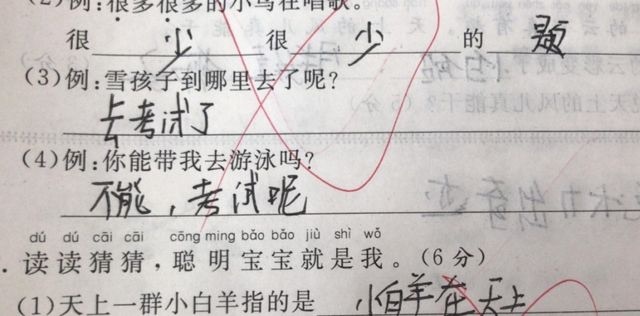 (2)例:很多很多的小鸟在唱歌。
很 少 很 少 的 题
(3)例:雪孩子到哪里去了呢?
去考试了
(4)例:你能带我去游泳吗?
不能,考试呢
dú dú cāi cāi cōng ming bǎo bǎo jiù shì wǒ
.读读猜猜,聪明宝宝就是我。(6分)
(1)天上一群小白羊指的是 小白羊在天上